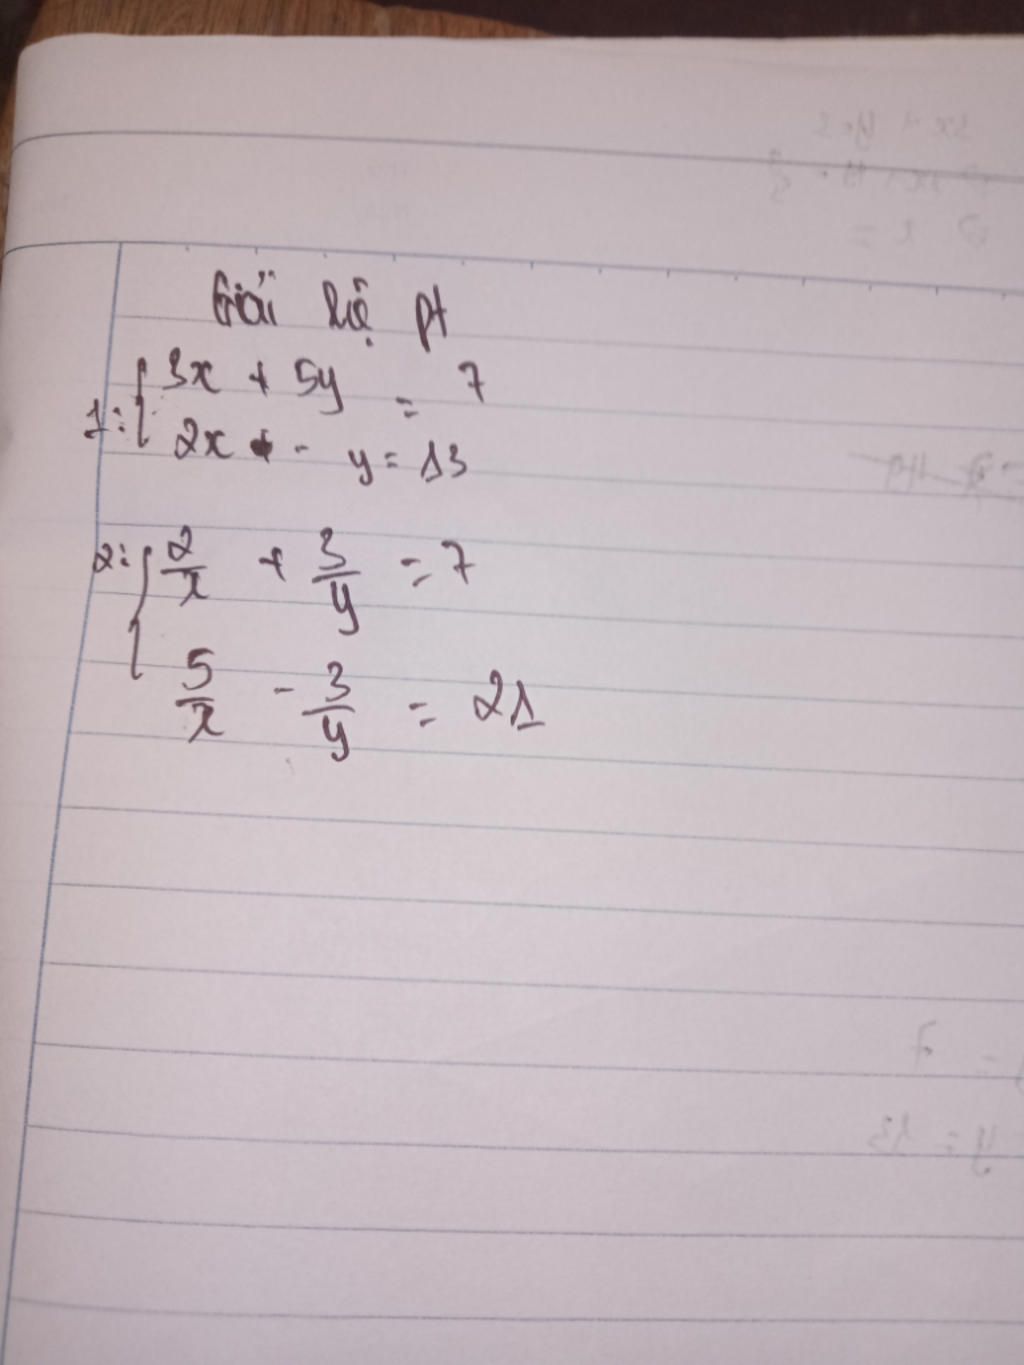 Giải hệ pt
1: { 3x + 5y = 7
2x - y = 13
2: { 2/x + 3/y = 7
5/x - 3/y = 21